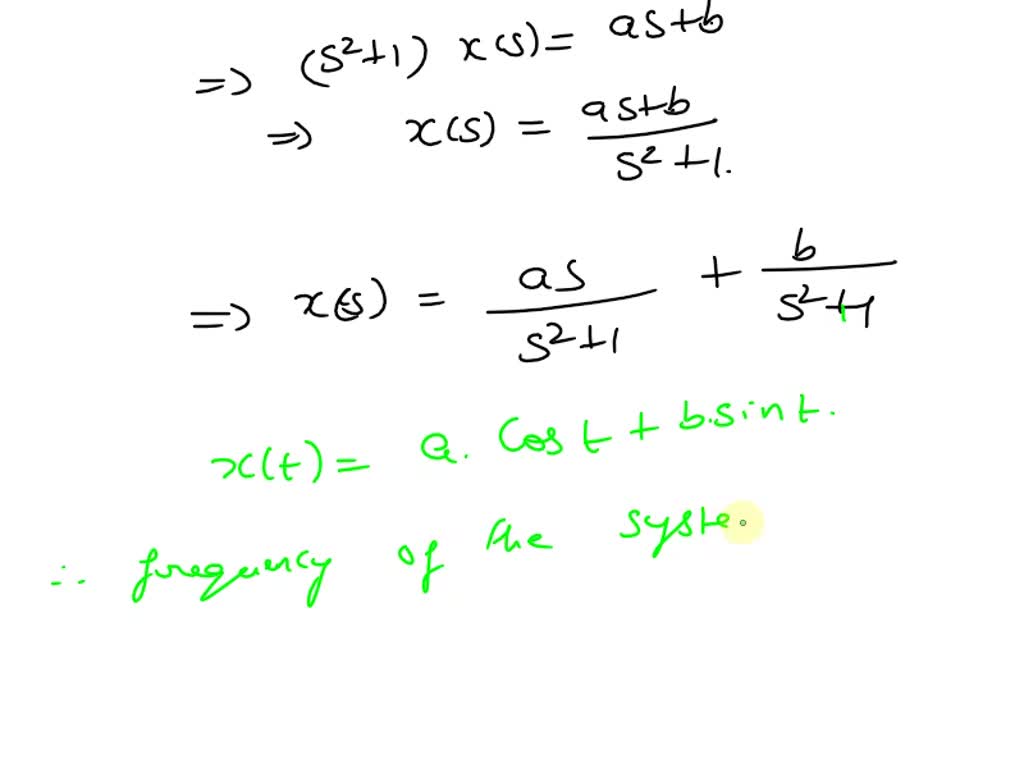 => (s²+1) x(s) = as+b
=> x(s) = as+b / s²+1.
=> x(s) = as / s²+1 + b / s²+1
x(t) = a. Cos t + b.sint.
∴ frequency of the syste